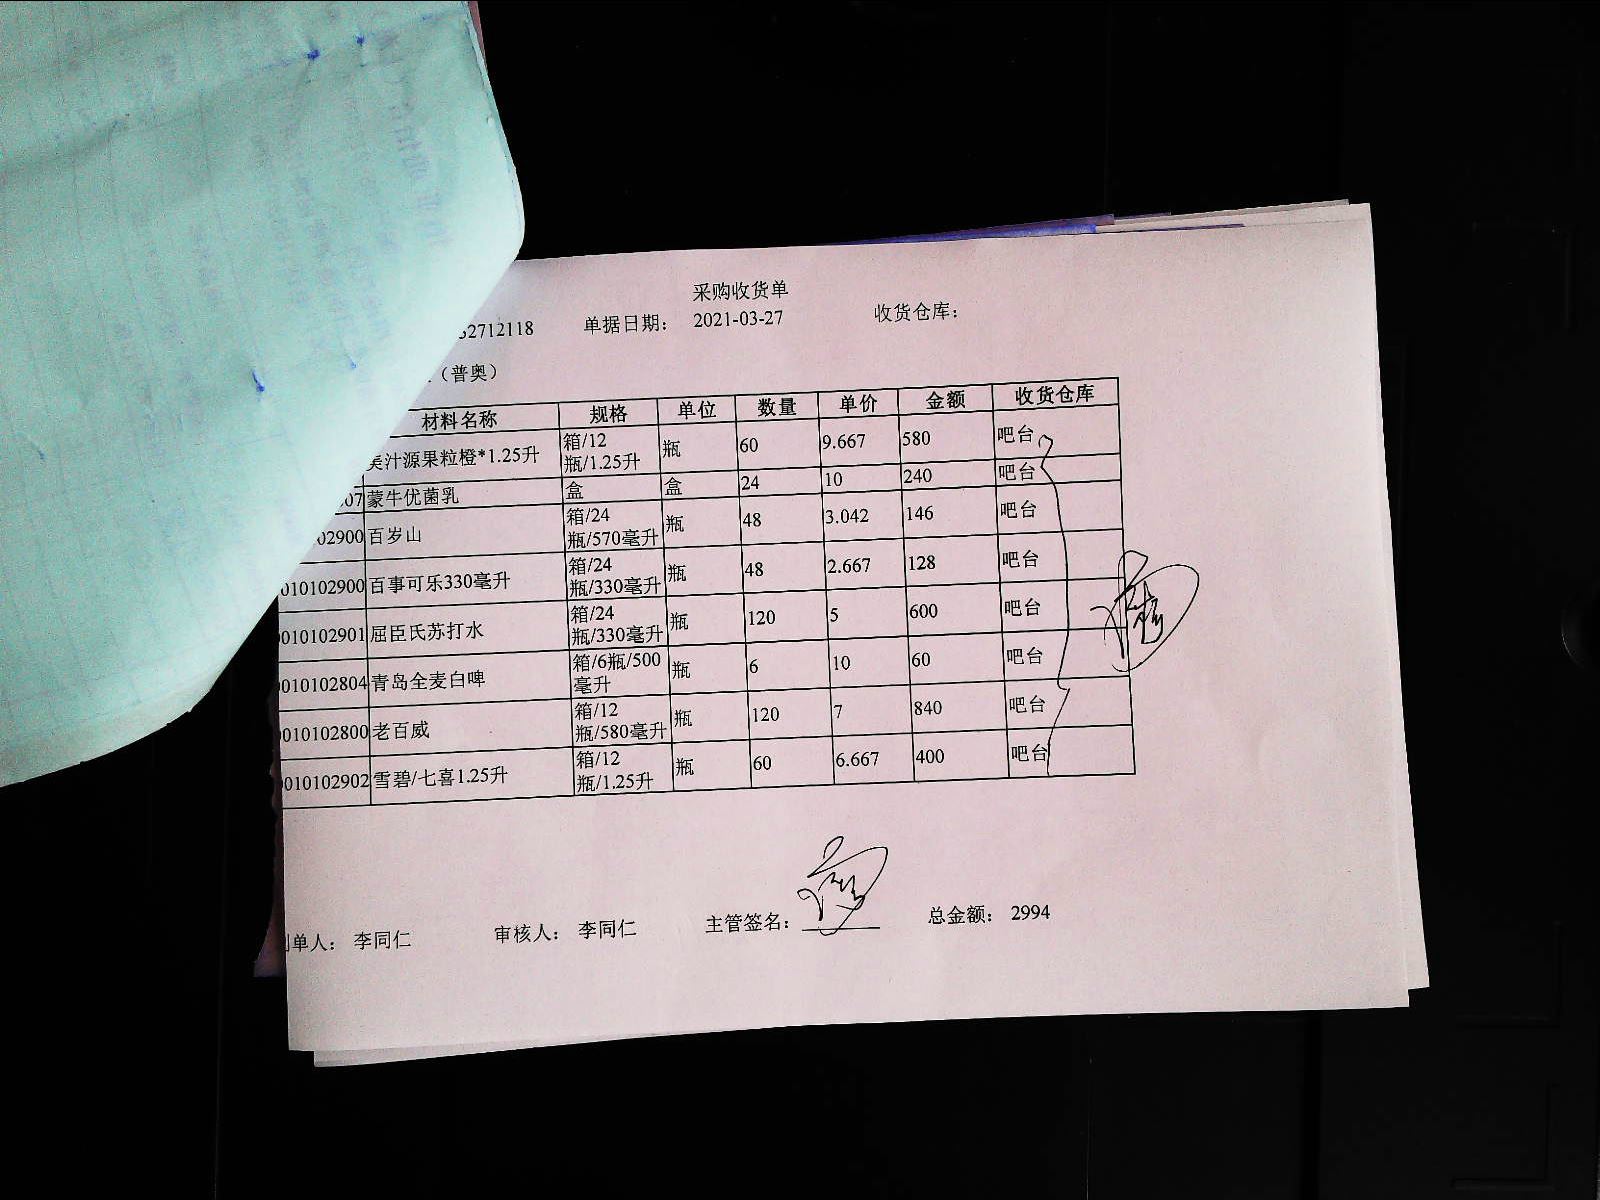 采购收货单
2712118 单据日期： 2021-03-27 收货仓库：
（普奥）
材料名称 规格 单位 数量 单价 金额 收货仓库
汁源果粒橙*1.25升 箱/12瓶/1.25升 瓶 60 9.667 580 吧台
07 蒙牛优菌乳 盒 盒 24 10 240 吧台
02900 百岁山 箱/24瓶/570毫升 瓶 48 3.042 146 吧台
010102900 百事可乐330毫升 箱/24瓶/330毫升 瓶 48 2.667 128 吧台
010102901 屈臣氏苏打水 箱/24瓶/330毫升 瓶 120 5 600 吧台
010102804 青岛全麦白啤 箱/6瓶/500毫升 瓶 6 10 60 吧台
010102800 老百威 箱/12瓶/580毫升 瓶 120 7 840 吧台
010102902 雪碧/七喜1.25升 箱/12瓶/1.25升 瓶 60 6.667 400 吧台
单人： 李同仁 审核人： 李同仁 主管签名： 总金额： 2994